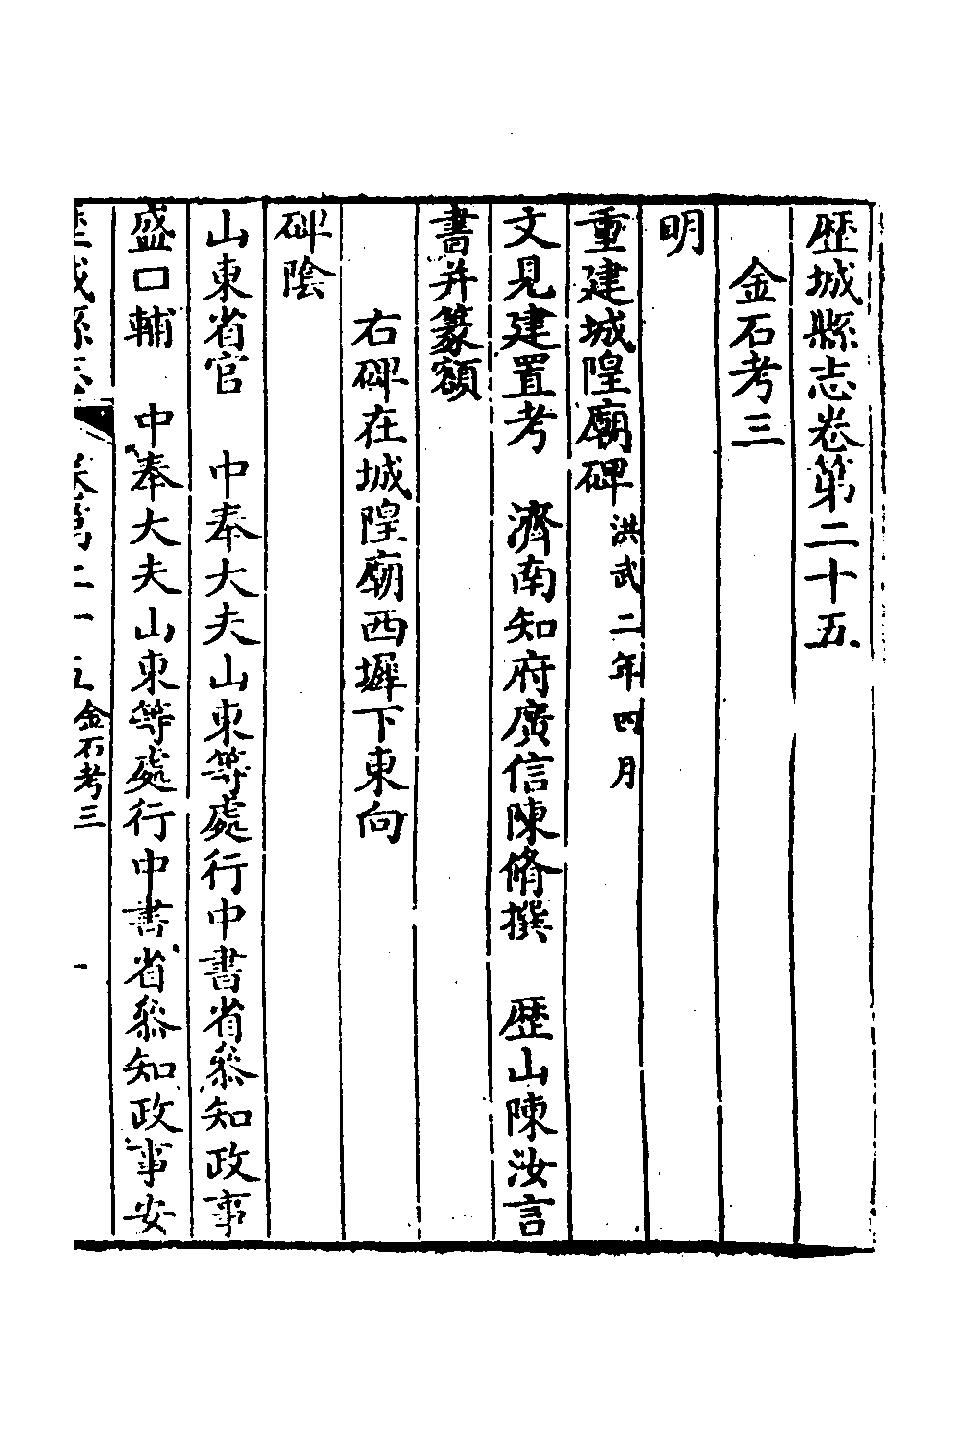 歷城縣志卷第二十五
金石考三
明
重建城隍廟碑洪武二年四月
文見建置考　濟南知府廣信陳脩撰　歷山陳汝言
書并篆額
右碑在城隍廟西墀下東向
碑陰
山東省官　中奉大夫山東等處行中書省叅知政事
盛口輔　中奉大夫山東等處行中書省叅知政事安
歷城縣志　卷第二十五金石考三　一